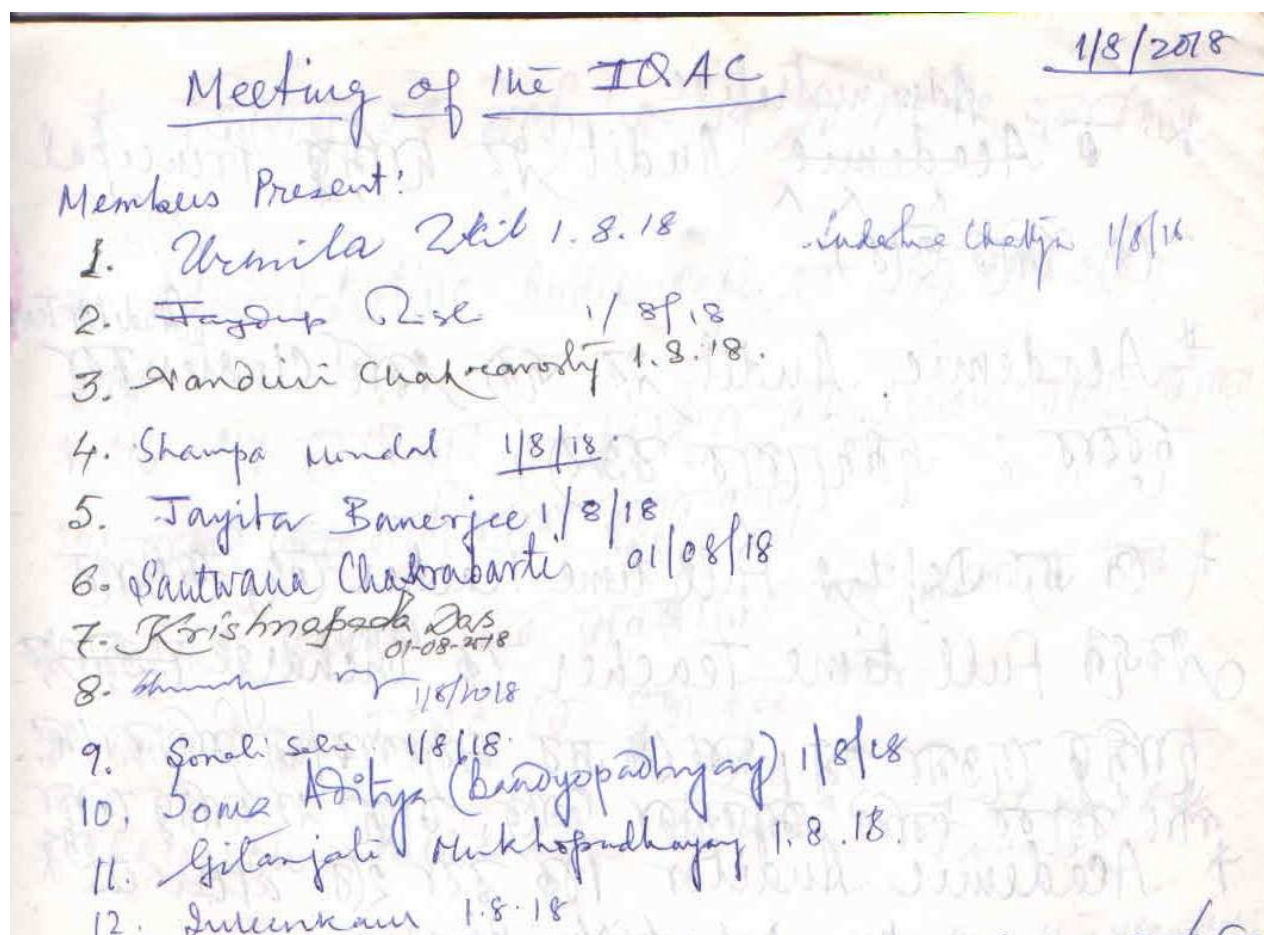 1/8/2018
Meeting of the IQAC
Members Present:
1. Urmila Ukil 1.8.18
Chatterjee 1/8/18
2. 1/8/18
3. Nandini Chakravorty 1.8.18.
4. Shampa Mondal 1/8/18
5. Jayita Banerjee 1/8/18
6. Santwana Chakrabarti 01/08/18
7. Krishnapada Das
01-08-2018
8. 1/8/2018
9. Sonali Saha 1/8/18.
10. Soma Aditya (Bandyopadhyay) 1/8/18
11. Gitanjali Mukhopadhyay 1.8.18.
12. 1.8.18